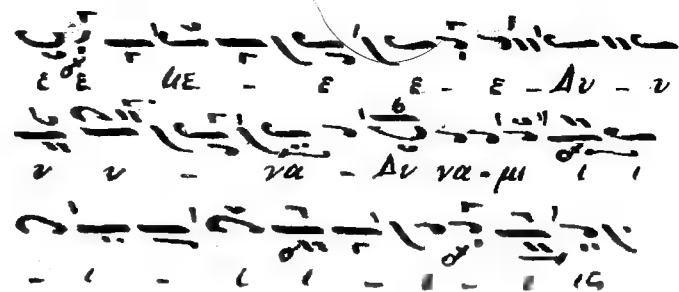 ε ε με - ε ε - ε - Δυ - υ
υ υ - να - Δυ να - μι ι ι
- ι - ι ι - ι - ι ις